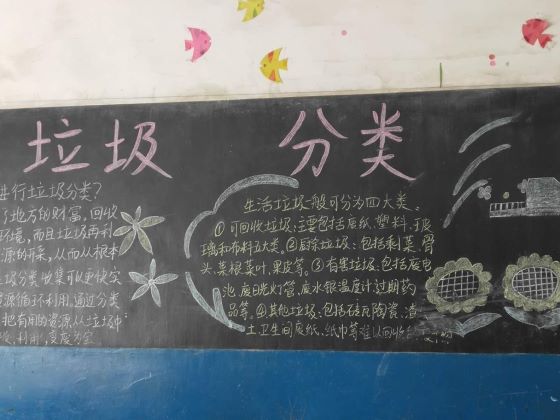 垃圾 分类
进行垃圾分类?
了地方的财富,回收
环境,而且垃圾再利
源的开采,从而从根本
圾分类收集可以更快实
资源循环利用,通过分类
把有用的资源,从垃圾中
收,利用,变废为宝
生活垃圾一般可分为四大类.
①可回收垃圾:主要包括废纸、塑料、
璃和布料五大类。②厨余垃圾:包括剩菜、骨
头、菜根菜叶、果皮等。③有害垃圾:包括废电
池、废日光灯管、废水银温度计、过期药
品等。④其他垃圾:包括砖瓦陶瓷、渣
土、卫生间废纸、纸巾等难以回收